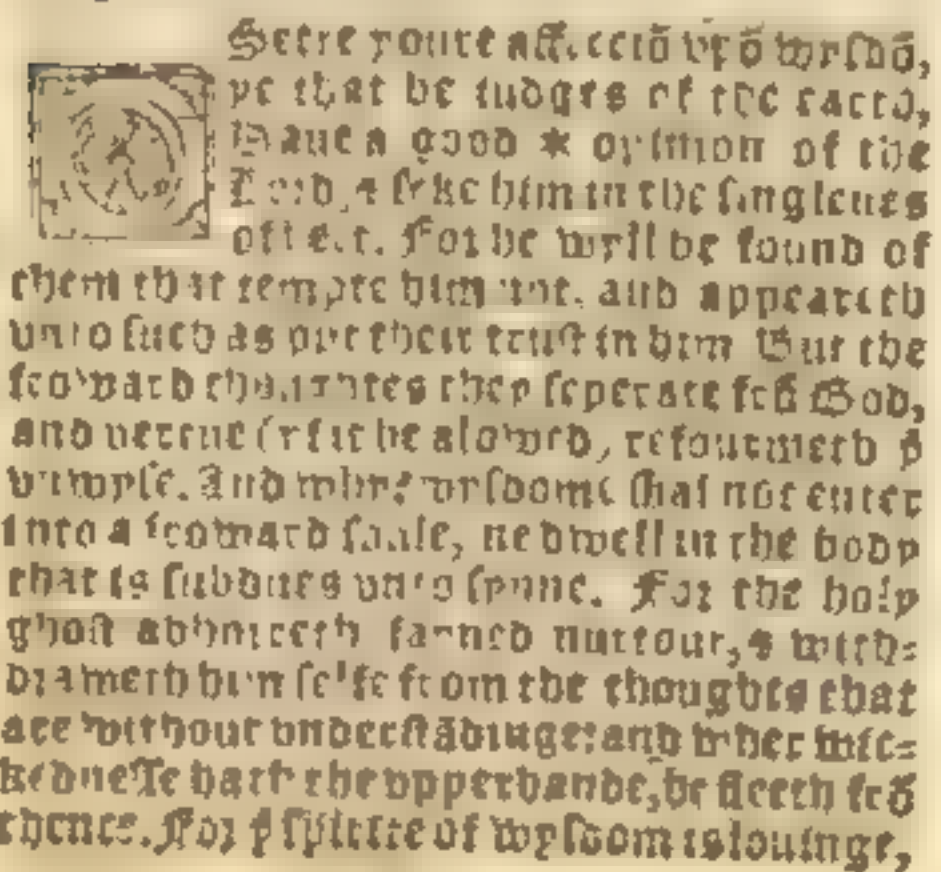 Sette youre affecciō vpō wysdō,
ye that be iudges of the earth,
Haue a good * opinion of the
Lord, & seke him in the singlenes
of hert. For he wyll be found of
them that tempte him not, and appeareth
vnto such as put their trust in him But the
froward thoughtes they seperate frō God,
and vertue (yf it be alowed) refourmeth þͤ
vnwyse. And why? wysdome shal not enter
into a froward soule, ne dwell in the body
that is subdued vnto synne. For the holy
ghost abhorreth fayned nurtour, & with=
draweth him selfe from the thoughtes that
are without vnderstādinge: and wher wic=
kednesse hath the vpperhande, he fleeth frō
thence. For þͤ spirite of wysdom is louinge,